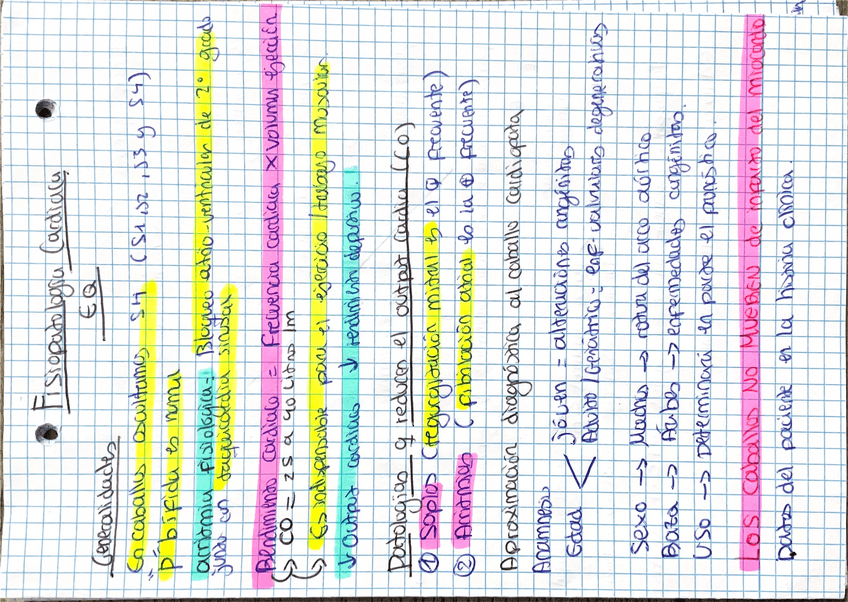 Fisiopatología Cardiaca
EQ
Generalidades
En caballos auscultamos S4 (S1, S2, S3 y S4)
"P" bífida es normal
arritmia fisiológica = Bloqueo atrio-ventricular de 2º grado
junto con bradicardia sinusal
Rendimiento cardiaco = Frecuencia cardiaca x volumen eyección
↳ CO = 25 a 40 litros/m
↳ Es indispensable para el ejercicio / trabajo muscular.
↓ Output cardiaco ↓ rendimiento deportivo!
Patologías q reducen el output cardiaco (CO)
① Soplos (regurgitación mitral es el ⊕ frecuente)
② Arritmias (fibrilación atrial es la ⊕ frecuente)
Aproximación diagnóstica al caballo cardiopata
Anamnesis
Edad < Jóven = alteraciones congénitas
Adulto / Geriátrico = enf. valvulares degenerativas
Sexo → Machos → rotura del arco aórtico
Raza → Árabes → enfermedades congénitas.
Uso → Determinará en parte el pronóstico.
LOS CABALLOS NO MUEREN de infarto del miocardo
Datos del paciente en la historia clínica.